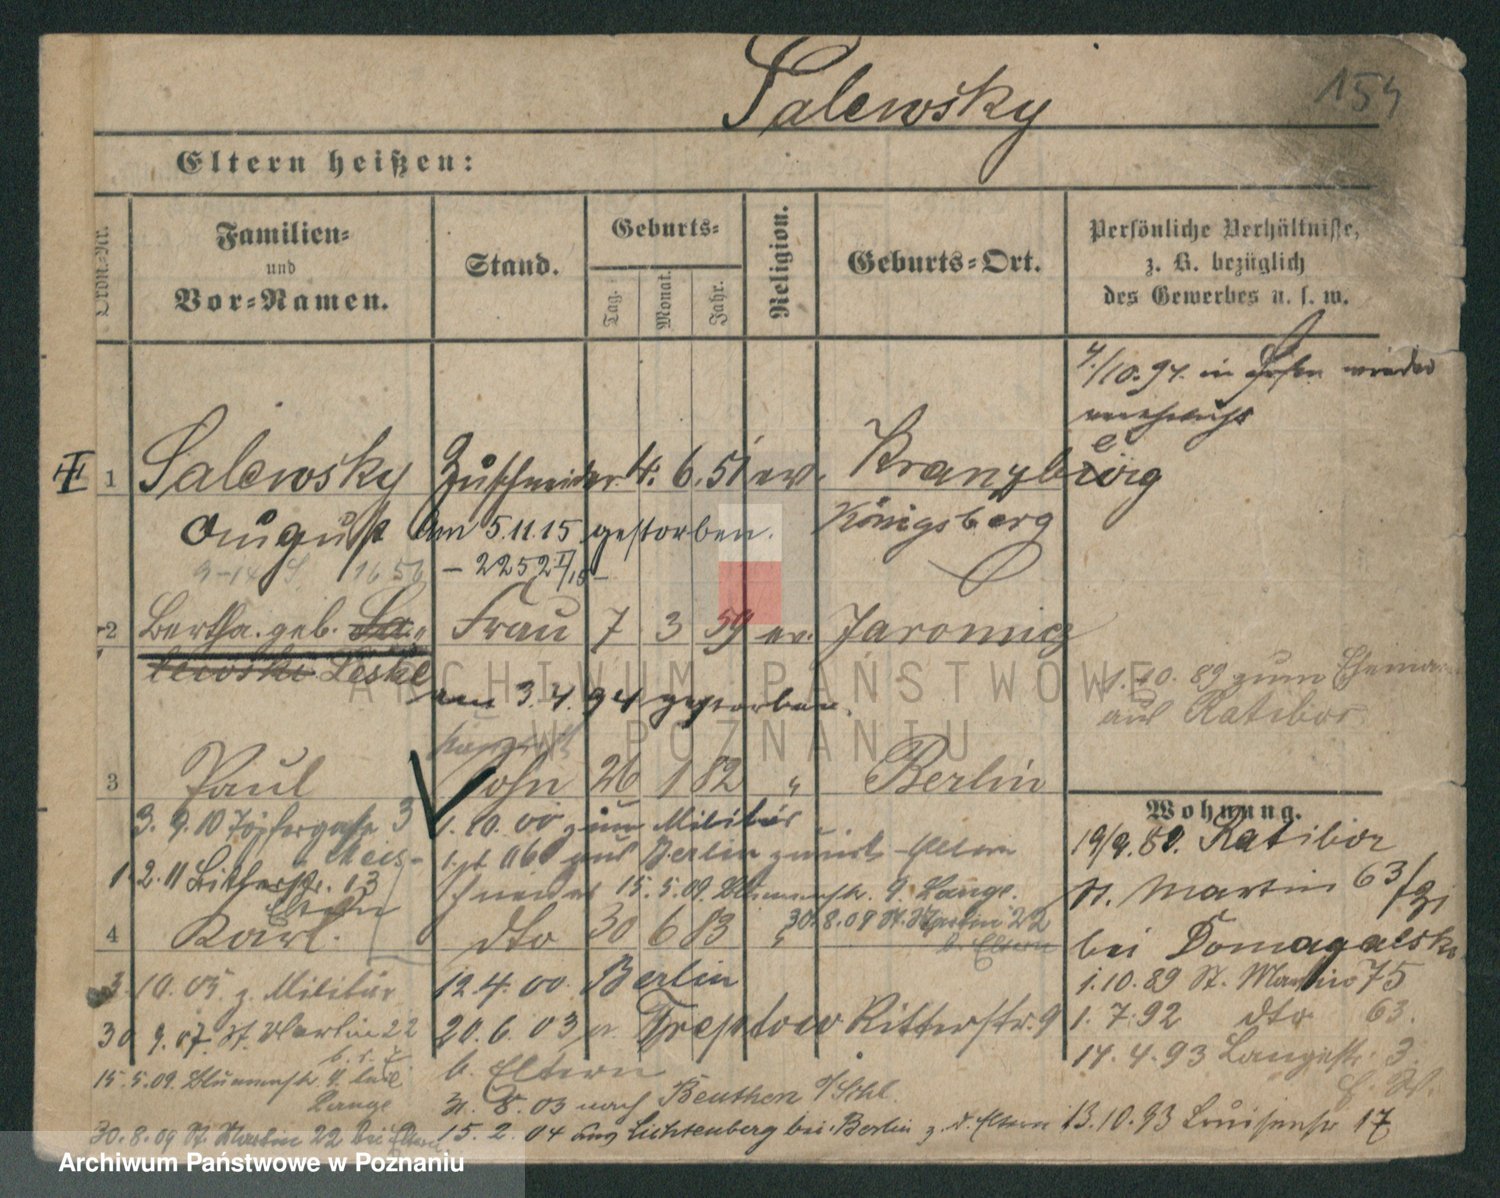 Salewsky
154
Eltern heißen:
Ordn.-Nr.
Familien-
und
Vor-Namen.
Stand.
Geburts-
Tag.
Monat.
Jahr.
Religion.
Geburts-Ort.
Persönliche Verhältnisse,
z. B. bezüglich
des Gewerbes u. s. w.
4/10.94. in Posen wieder
II
1
Salewsky
August
Zuschneider 4. 6. 51 ev.
Kranzberg
Königsberg
am 5.11.15 gestorben.
- 2252 II/15 -
2
Bertha. geb. Sa-
lewski Leske
Frau 7 3 59 ev. Jaromierz
am 3.4.94 gestorben.
1.10.89 zum Eheman
aus Ratibor
3
Paul
Sohn 26 1 82 " Berlin
3.9.10 Töpfergasse 3
1.10.00 zum Militär
1.2.11 Ritterstr. 13
Eltern
15.5.09. Blumenstr. 9. Lange.
30.8.09 St. Martin 22
b. Eltern
4
Karl.
dto 30 6 83 "
3.10.05 z. Militär
12.4.00. Berlin
30.9.07. St. Martin 22
20.6.03 Treptow Ritterstr. 9
b. Eltern
15.5.09. Blumenstr. 9. bei
Lange
31.8.03 nach Beuthen O/Schl.
30.8.09 St. Martin 22 bei Eltern
15.2.04 aus Lichtenberg bei Berlin z. d. Eltern
Wohnung.
19/9.89. Ratibor
St. Martin 63/
bei Domagalski
1.10.89 St. Martin 75
1.7.92 dto 63.
14.4.93 Langestr. 3.
13.10.93 Luisenstr 17
ARCHIWUM PAŃSTWOWE
W POZNANIU
Archiwum Państwowe w Poznaniu